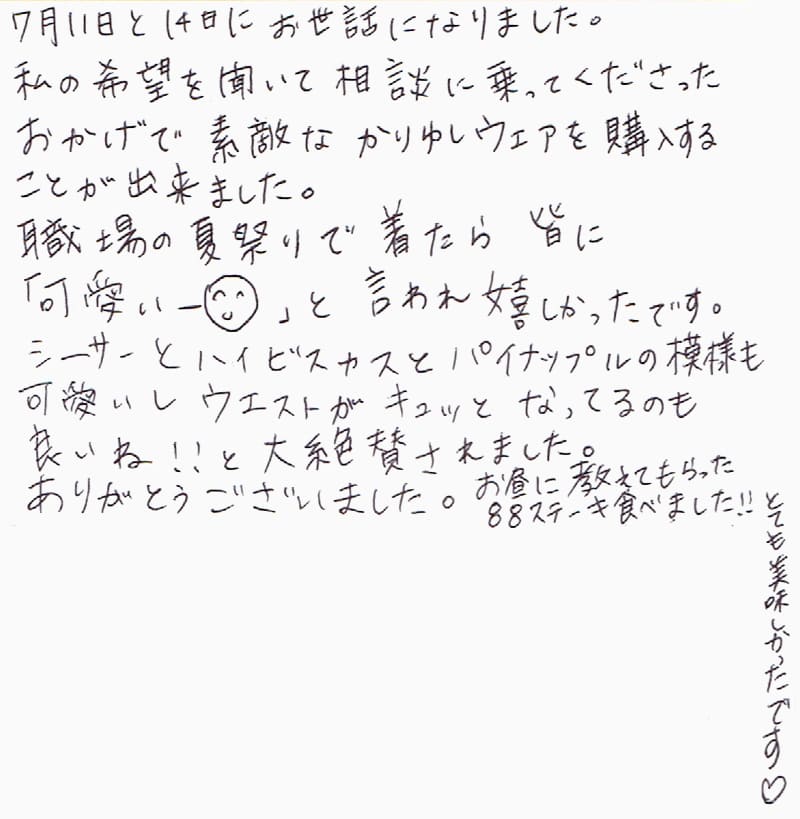 7月11日と14日にお世話になりました。
私の希望を聞いて相談に乗ってくださった
おかげで素敵なかりゆしウェアを購入する
ことが出来ました。
職場の夏祭りで着たら皆に
「可愛いー 」と言われ嬉しかったです。
シーサーとハイビスカスとパイナップルの模様も
可愛いしウエストがキュッとなってるのも
良いね!!と大絶賛されました。
ありがとうございました。
お昼に教えてもらった
88ステーキ食べました!!
とても美味しかったです♡